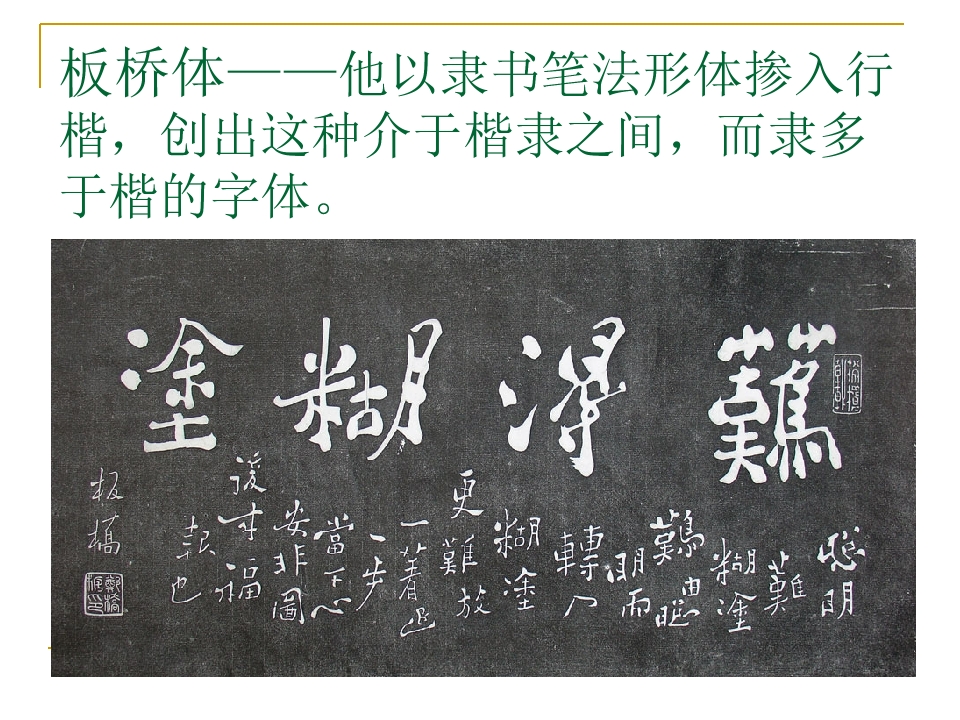 板桥体——他以隶书笔法形体掺入行
楷，创出这种介于楷隶之间，而隶多
于楷的字体。
難得糊塗
聰明
難
糊塗
難由聰
明而
轉入
糊塗
更難放
一著退
一步
當下心
安非圖
後來福
報也
板橋